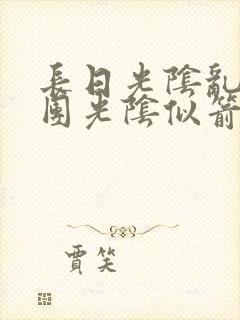 長日光陰亂
團光陰似箭
賈笑